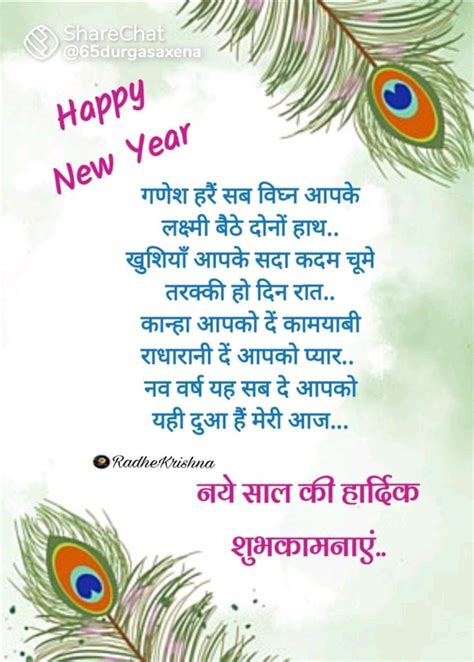 ShareChat
@65durgasaxena
Happy
New Year
गणेश हरैं सब विघ्न आपके
लक्ष्मी बैठे दोनों हाथ..
खुशियाँ आपके सदा कदम चूमे
तरक्की हो दिन रात..
कान्हा आपको दें कामयाबी
राधारानी दें आपको प्यार..
नव वर्ष यह सब दे आपको
यही दुआ हैं मेरी आज...
RadheKrishna
नये साल की हार्दिक
शुभकामनाएं..